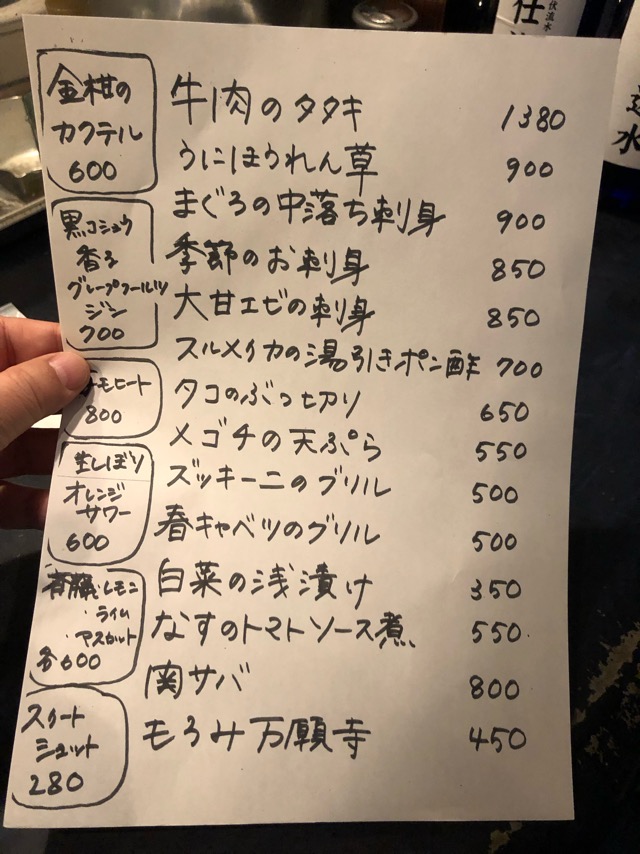 金柑の
カクテル
600
黒コショウ
香る
グレープフルーツ
ジン
700
モヒート
800
生しぼり
オレンジ
サワー
600
レモン
ライム
マスカット
各600
スイート
シュット
280
牛肉のタタキ 1380
うにほうれん草 900
まぐろの中落ち刺身 900
季節のお刺身 850
大甘エビの刺身 850
スルメイカの湯引きポン酢 700
タコのぶっ切り 650
メゴチの天ぷら 550
ズッキーニのグリル 500
春キャベツのグリル 500
白菜の浅漬け 350
なすのトマトソース煮 550
関サバ 800
もろみ万願寺 450
水